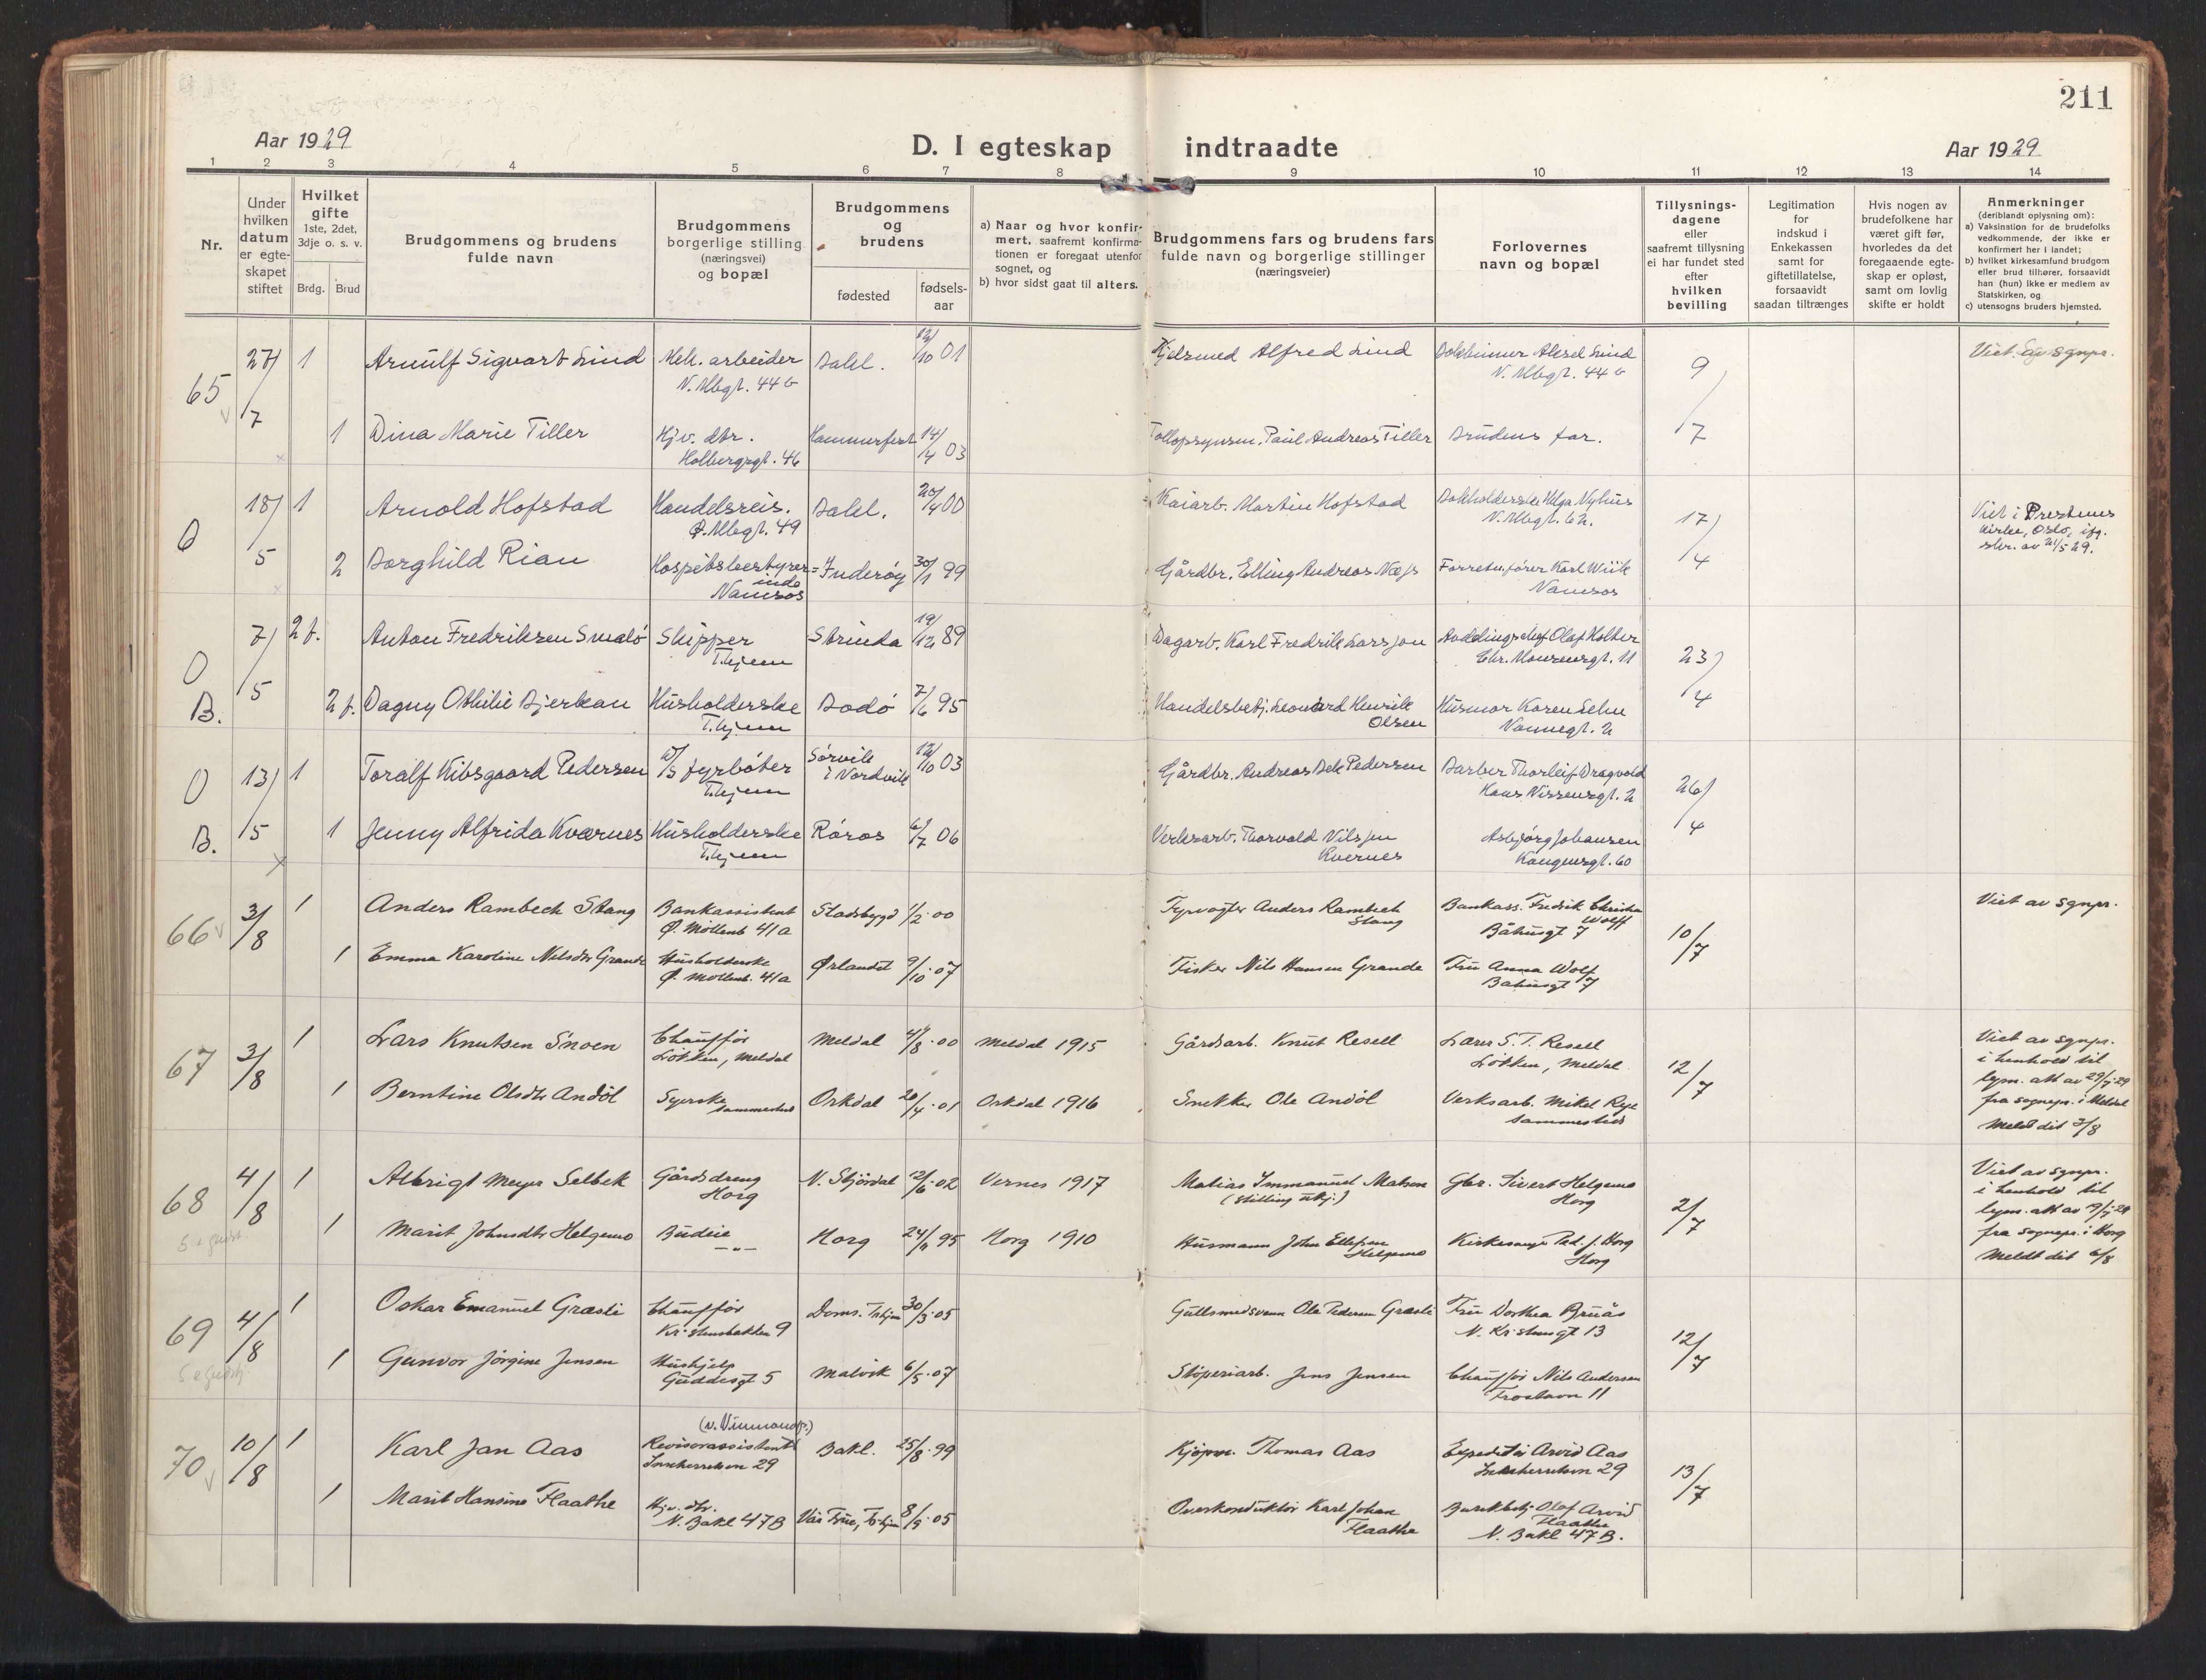 211
Aar 1929
D. I egteskap indtraadte
Aar 1929
1 2 3 4 5 6 7 8 9 10 11 12 13 14
Nr.
Under
hvilken
datum
er egte-
skapet
stiftet
Hvilket
gifte
1ste, 2det,
3dje o. s. v.
Brdg. Brud
Brudgommens og brudens
fulde navn
Brudgommens
borgerlige stilling
(næringsvei)
og bopæl
Brudgommens
og
brudens
fødested
fødsels-
aar
a) Naar og hvor konfir-
mert, saafremt konfirma-
tionen er foregaat utenfor
sognet, og
b) hvor sidst gaat til alters.
Brudgommens fars og brudens fars
fulde navn og borgerlige stillinger
(næringsveier)
Forlovernes
navn og bopæl
Tillysnings-
dagene
eller
saafremt tillysning
ei har fundet sted
efter
hvilken
bevilling
Legitimation
for
indskud i
Enkekassen
samt for
giftetillatelse,
forsaavidt
saadan tiltrænges
Hvis nogen av
brudefolkene har
været gift før,
hvorledes da det
foregaaende egte-
skap er opløst,
samt om lovlig
skifte er holdt
Anmerkninger
(deriblandt oplysning om):
a) Vaksination for de brudefolks
vedkommende, der ikke er
konfirmert her i landet;
b) hvilket kirkesamfund brudgom
eller brud tilhører, forsaavidt
han (hun) ikke er medlem av
Statskirken, og
c) utensogns bruders hjemsted.
65 27/7 1 Arnulf Sigvart Lind Mek. arbeider Bakl. 12/10 01 Kjelsmed Alfred Lind Lind 9/7 Viet av sgnpr.
N. Mbgt. 44 b N. Mbgt. 44 b
1 Dina Marie Tiller Hjv. dtr. Hammerfest 14/4 03 Tollopsynsm. Paul Andreas Tiller Brudens far.
Holbergsgt. 46
O 18/5 1 Arnold Hofstad Handelsreis. Bakl. 20/4 00 Kaiarb. Martin Hofstad Helga Nyhus 17/4 Viet i
Ø. Mbgt. 49 N. Mbgt. 62. kirke, Oslo, ifg.
skr. av 21/5 29.
2 Borghild Rian Hospitsbestyrer= Inderøy 30/1 99 Gårdbr. Elling Andreas Næss Forretn.fører Karl Wiik
inde
Namsos Namsos
O 7/5 2 f. Anton Fredriksen Smalö Skipper Strinda 19/12 89 Dagarb. Karl Fredrik Larsson Olaf Holter 23/4
T.hjem 11
B. 2 f. Dagny Othilie Bjerkan Husholderske Bodö 7/6 95 Handelsbetj. Leonard Henrik Husmor Karen Lehn
T.hjem Olsen Nonnegt. 2
O 13/5 1 Toralf Kibsgaard Pedersen fyrböter Sørvik 12/10 03 Gårdbr. Andreas Dek Pedersen Barber Thorleif Dragvold 26/4
T.hjem i Nordvik Hans Nissensgt. 2
B. 1 Jenny Alfrida Kværnes Husholderske Röros 06 Verksarb. Thorvald Nilssen Asbjørg Johansen
T.hjem Kvernes Kongensgt. 60
66 3/8 1 Anders Rambech Stang Bankassistent Stadsbygd 1/2 00 Fyrvogter Anders Rambech Bankass. Fredrik Christian 10/7 Viet av sgnpr.
Ø. Möllenb 41a Stang Wolff
Båhusgt 7
1 Emma Karoline Nilsdtr Grande Husholderske Ørlandet 9/10 07 Fisker Nils Hansen Grande Fru Anna Wolf
Ø. Möllenb. 41a Bahusgt 7
67 3/8 1 Lars Knutsen Snoen Chauffør Meldal 4/8 00 Meldal 1915 Gårdarb. Knut Resell Lærer S. T. Resell 12/7 Viet av sgnpr.
Lökken, Meldal Lökken, Meldal i henhold til
lysn. att av 29/7 29
1 Berntine Olsdtr Andöl Syerske Orkdal 20/4 01 Orkdal 1916 Snekker Ole Andöl Verksarb. Mikel Rye fra sognepr. i Meldal
sammested sammesteds Meldt dit 3/8
68 4/8 1 Albrigt Meyer Selbek Gårdsdreng N. Stjördal 12/6 02 Vernes 1917 Matias Immanuel Matsen Gbr. Sivert Helgemo 2/7 Viet av sgnpr.
Horg (stilling ukj.) Horg i henhold til
lysn. att av 19/7 29
1 Marit Johnsdtr Helgemo Budeie Horg 24/11 95 Horg 1910 Husmann John Ellefsen Kirkesanger Ped. J. Horg fra sognepr. i Horg
Helgemo Horg Meldt dit 6/8
69 4/8 1 Oskar Emanuel Græsli Chauffør Doms. T.hjem 30/3 05 Gullsmedsvenn Ole Pedersen Græsli Fru Dorthea Bruås 12/7
Kristiansbakken 9 N. Kristiansgt 13
1 Gunvor Jörgine Jensen Hushjelp Malvik 6/5 07 Stöperiarb. Jens Jensen Chauffør Nils Andersen
Guddesgt 5 Frostavn 11
70 10/8 1 Karl Jan Aas Revisorassistent Bakl. 25/8 99 Kjöpm. Thomas Aas Expeditör Arvid Aas 13/7
Innherredsvn 29 Innherredsvn 29
1 Marit Hansine Flaathe Hjv. dtr. Vår Frue, T.hjem 8/9 05 Overkonduktör Karl Johan Olaf Arvid
N. Bakl 47B Flaathe Flaathe
N. Bakl 47 B.